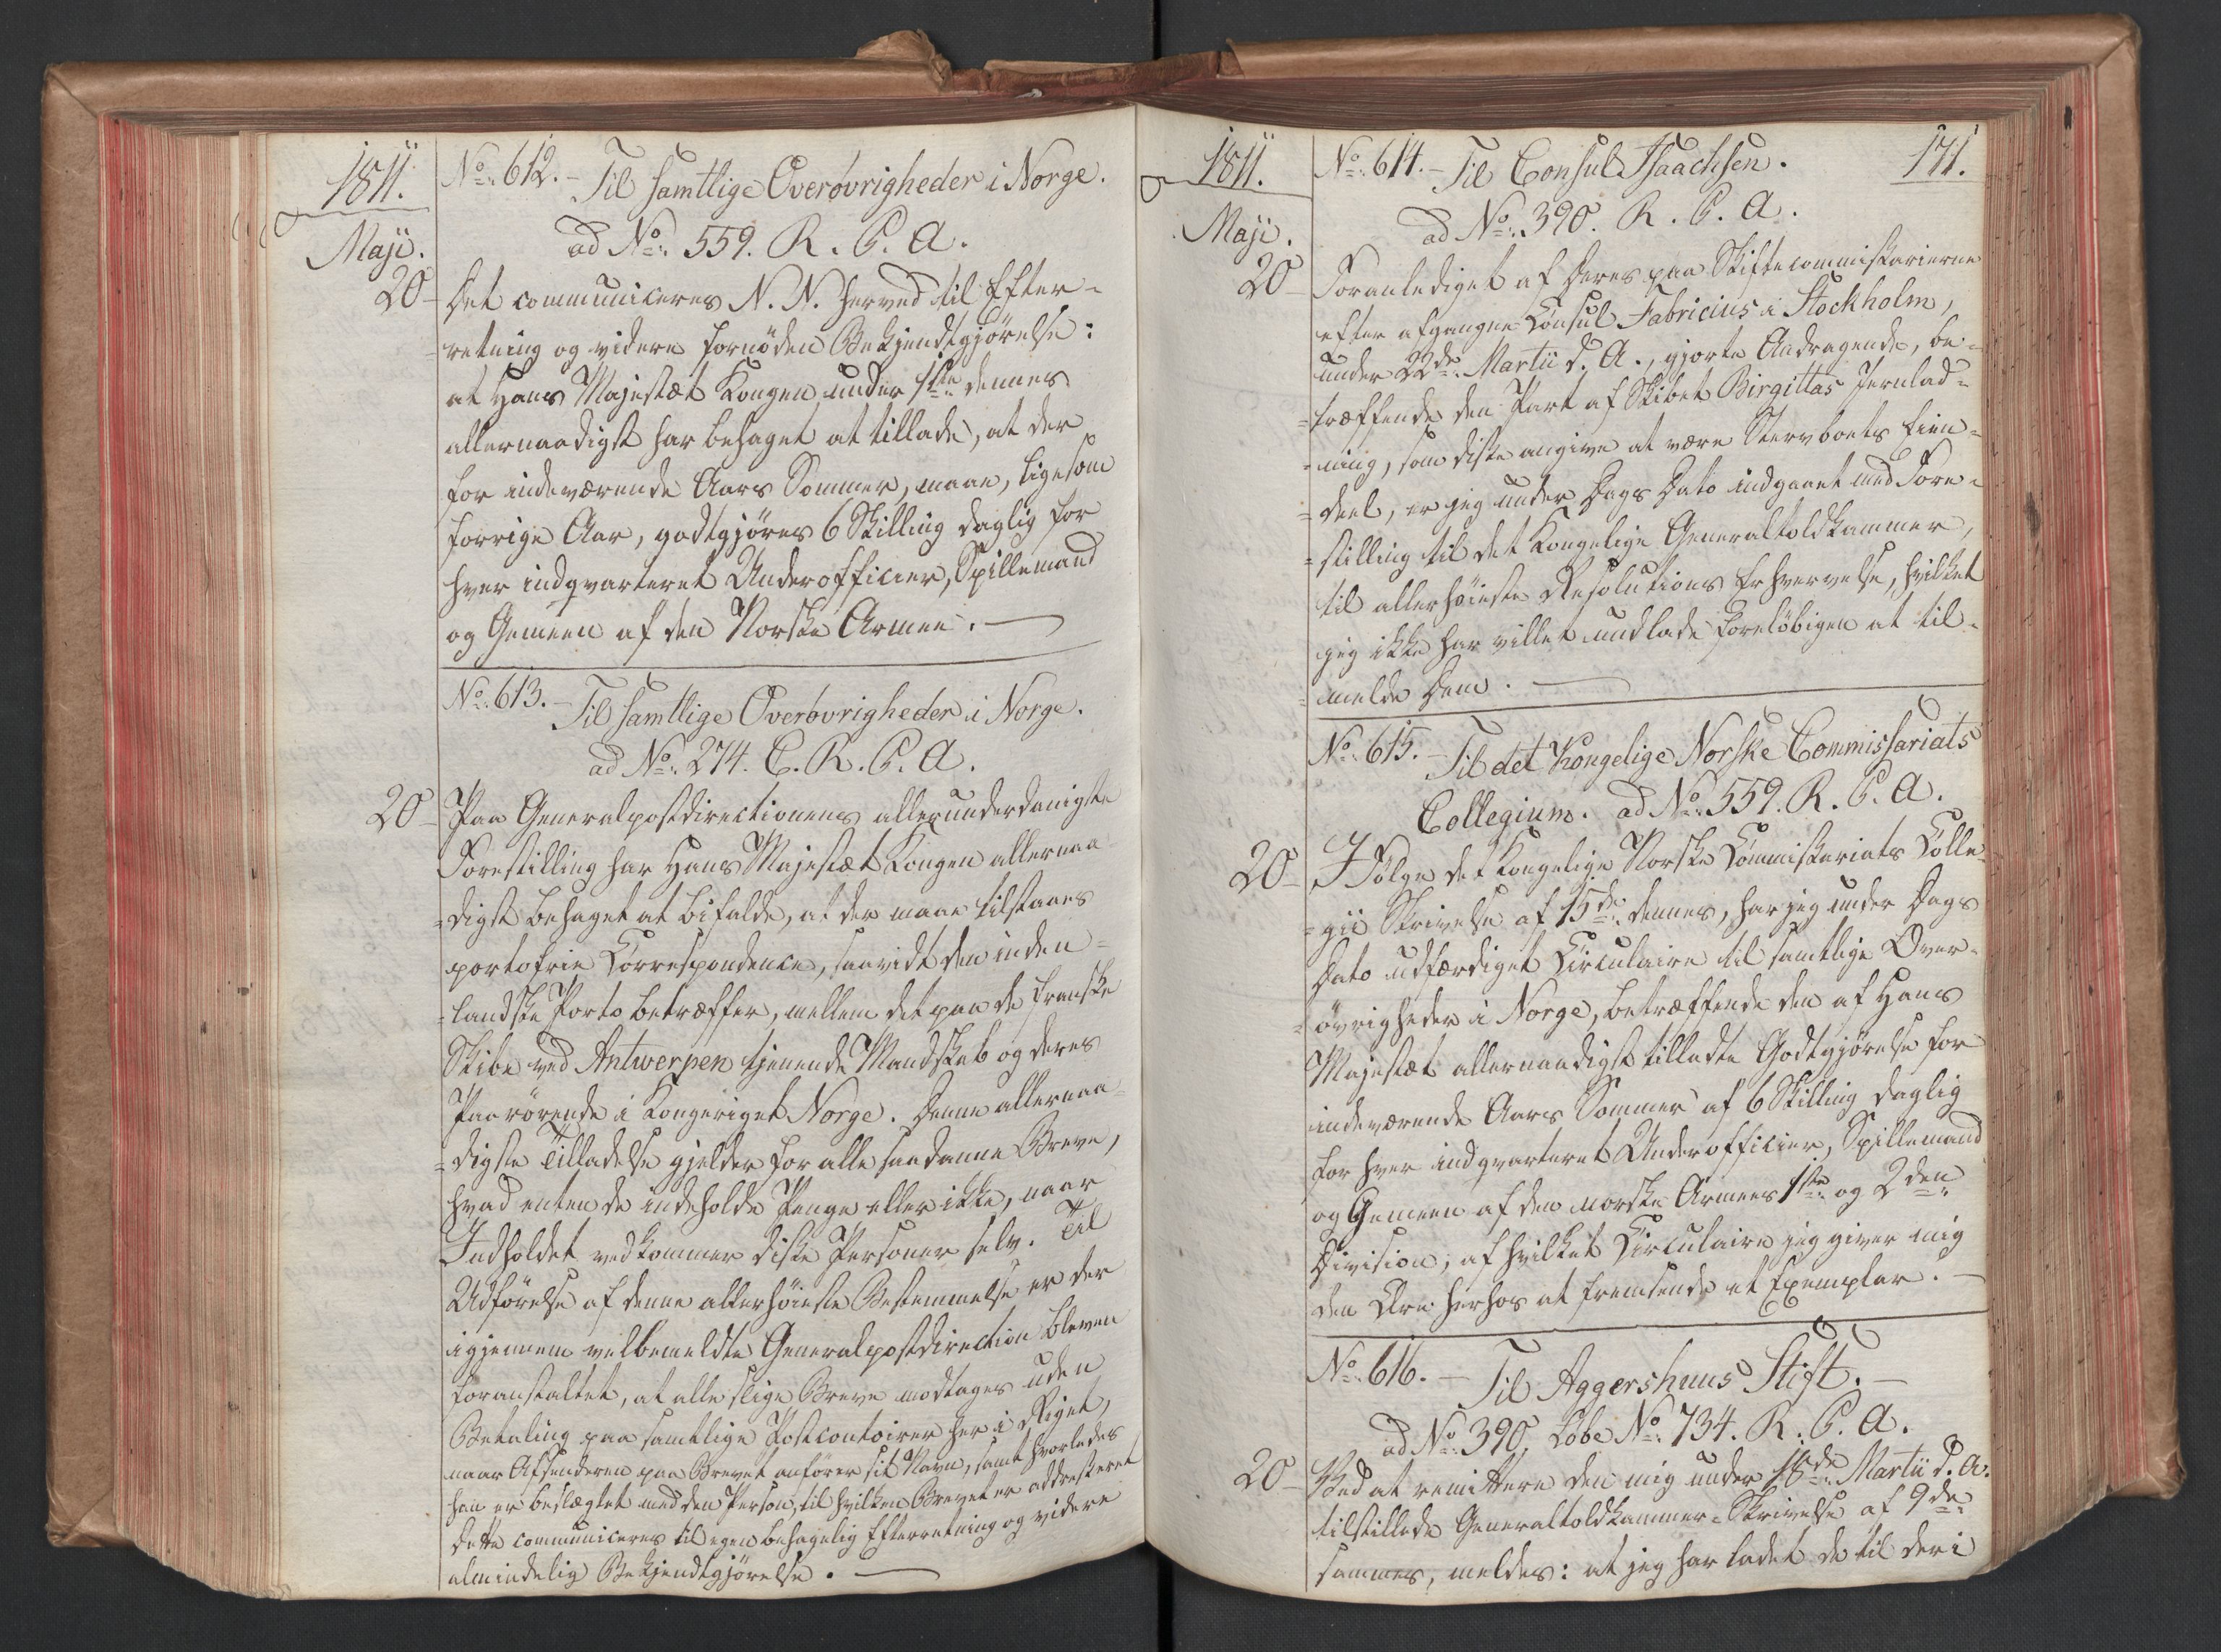 1811.
No: 612. - Til samtlige Overøvrigheder i Norge.
ad No: 559. R. C. A.
Maji.
20 - Det communiceres N. N. herved til Efter-
=retning og videre fornøden Bekjendtgjørelse:
at Hans Majestæt Kongen under 1ste dennes
allernaadigst har behaget at tillade, at der
for indeværende Aars Sommer, maae, ligesom
forrige Aar, godtgjøres 6 Skilling daglig for
hver indqvarteret Underofficier, Spillemand
og Gemeen af den Norske Armee. -
No: 613. - Til samtlige Overøvrigheder i Norge.
ad No: 274. C. R. C. A.
20 - Paa Generalpostdirectionens allerunderdanigste
Forestilling har Hans Majestæt Kongen allernaa
=digst behaget at bifalde, at der maae tilstaaes
portofrie Correspondence, saavidt den inden-
=landske Porto betræffer, mellem det paa de franske
Skibe ved Antwerpen tjenende Mandskab og deres
Paarørende i Kongeriget Norge. Denne allernaa-
=digste Tilladelse gjelder for alle saadanne Breve,
hvad enten de indeholde Penge eller ikke, naar
Indholdet vedkommer diske Personer selv. Til
Udførelse af denne allerhøieste Bestemmelse er der
igjennem velbemeldte Generalpostdirection bleven
foranstaltet, at alle slige Breve modtages uden
Betaling paa samtlige Postcontoirer her i Riget,
naar Afsenderen paa Brevet anfører sit Navn, samt hvorledes
han er beslægtet med den Person, til hvilken Brevet er addresseret
Dette communiceres til egen behagelig Efterretning og videre
almindelig Bekjendtgjørelse. -
1811.
No: 614. - Til Consul Isaachsen.
171.
ad No: 390. R. C. A.
Maji.
20 - Foranlediget af Deres paa Skiftecommissarierne
efter afgangne Consul Fabricius i Stockholm,
under 22de Martii d. A., gjorte Andragende, be-
=træffende den Part af Skibet Birgittas Jernlad-
=ning, som diske angive at være Stervboets Eien-
=deel, er jeg under Dags Dato indgaaet med Fore-
=stilling til det Kongelige Generaltoldkammer,
til allerhøieste Resolutions Erhvervelse, hvilket
jeg ikke har villet undlade foreløbigen at til-
=melde Dem. -
No: 615. - Til det Kongelige Norske Commissariats
Collegium. ad No: 559. R. C. A.
20 - I Følge det Kongelige Norske Commissariats Colle-
=gii Skrivelse af 15de dennes, har jeg under Dags
Dato udfærdiget Circulaire til samtlige Over-
=øvrigheder i Norge, betræffende den af Hans
Majestæt allernaadigst tilladte Godtgjørelse for
indeværende Aars Sommer af 6 Skilling daglig
for hver indqvarteret Underofficier, Spillemand
og Gemeen af den norske Armees 1ste og 2den
Division; af hvilket Circulaire jeg giver mig
den Ære herhos at fremsende et Exemplar. -
No: 616. - Til Aggershuus Stift. -
ad No: 390, Løbe No: 734. R. C. A.
20 - Ved at remittere den mig under 18de Martii d. A.
tilstillede Generaltoldkammer-Skrivelse af 9de
sammes, meldes: at jeg har ladet de til deri